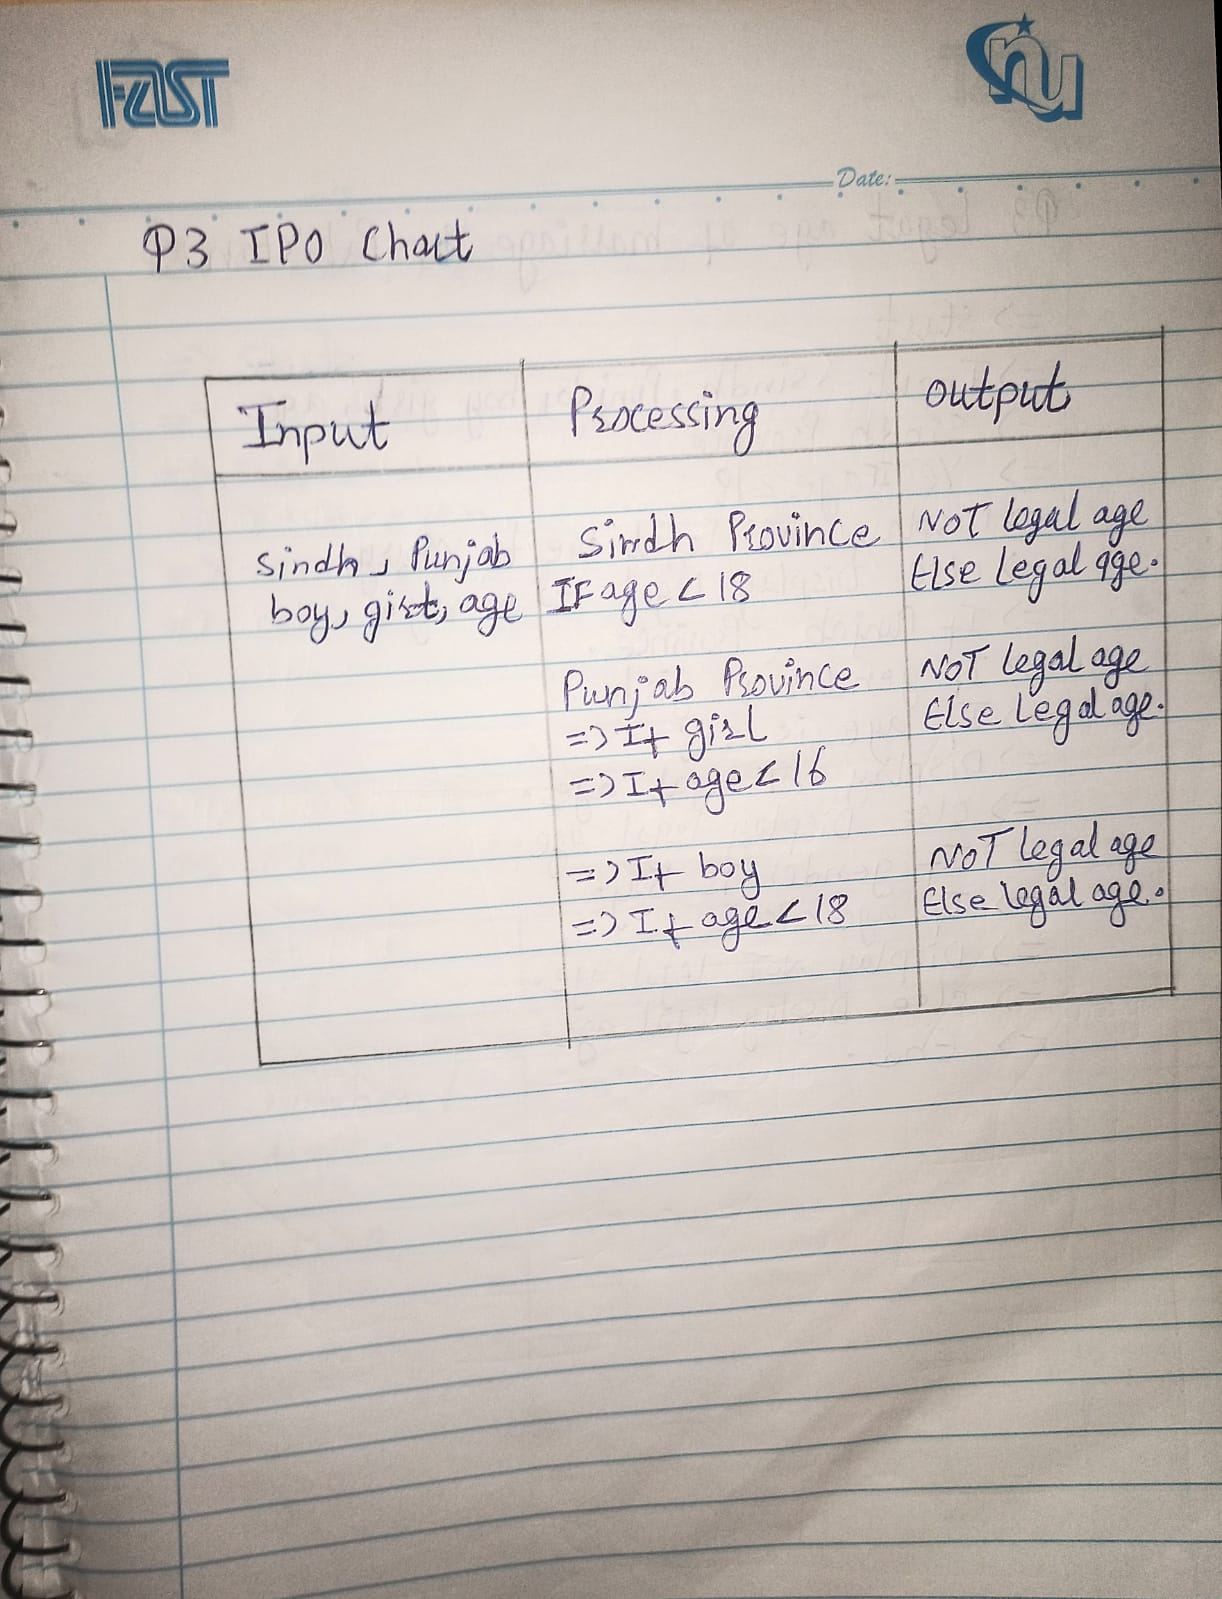 FAST
nu
Date:
Q3 IPO Chart
Input
Processing
output
Sindh, Punjab
boy, girl, age
Sindh Province
IF age < 18
NOT legal age
Else Legal age.
Punjab Province
=> If girl
=> If age < 16
NOT legal age
Else Legal age.
=> If boy
=> If age < 18
NOT legal age
Else legal age.